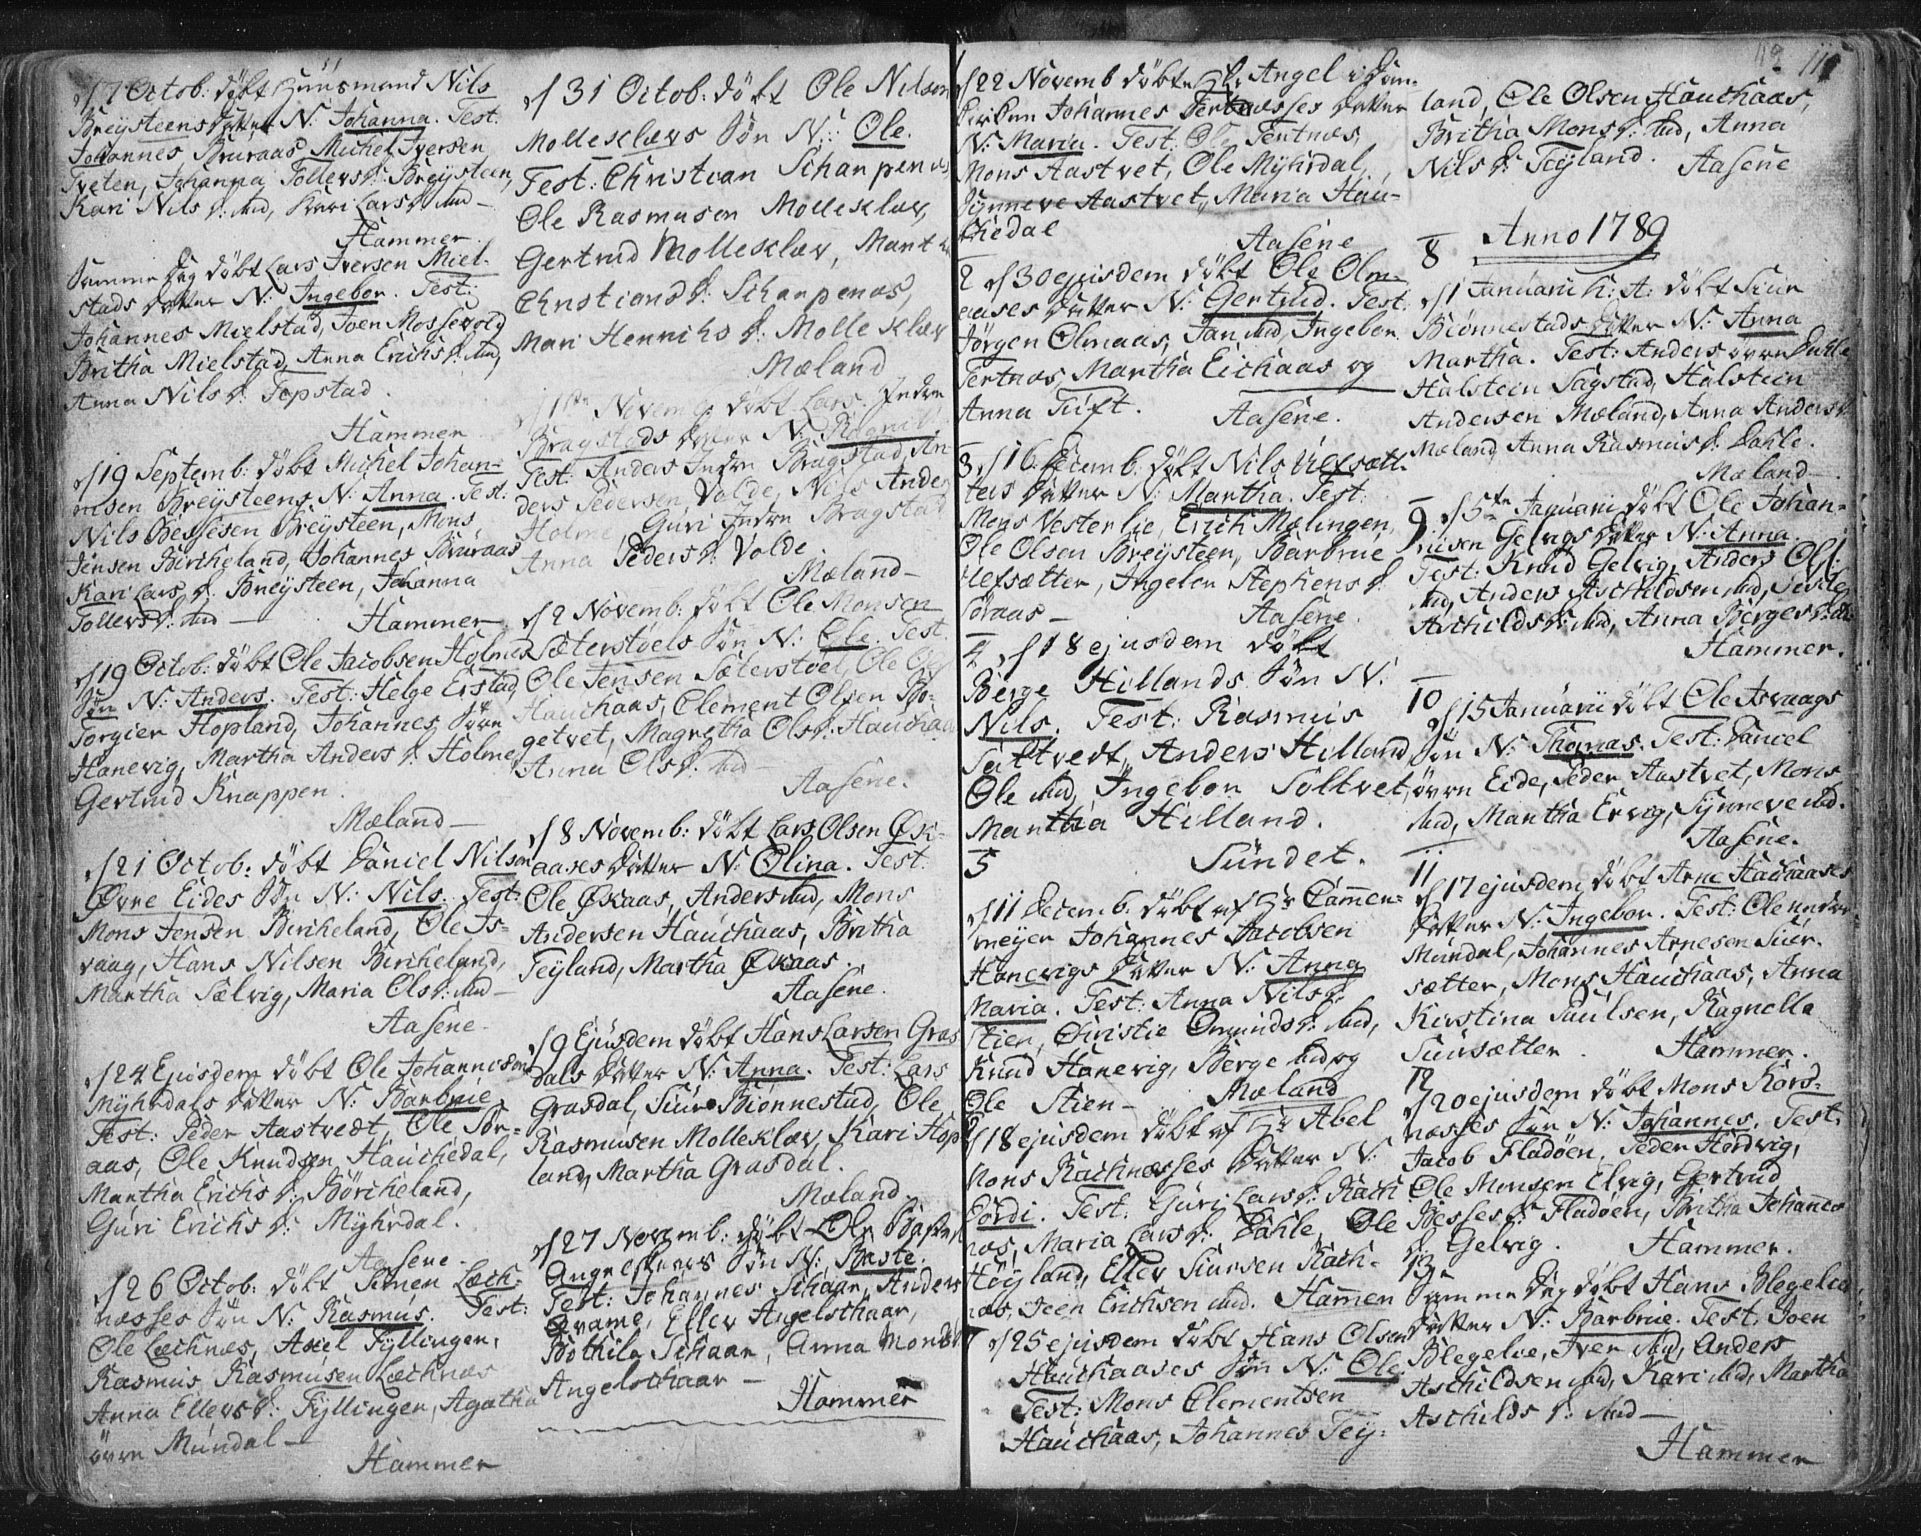 d 17 Octob: döbt Huusmand Nils
Breÿsteens datter N: Johanna. Test:
Johannes Bruraas Michel Iversen
Tveten, Johanna Tollevs d: Breÿsteen,
Kari Nils d: ibid, Kari Lars d: ibid –
Hammer.
Samme dag döbt Lars Iversen Miel-
stads datter N: Ingebor. Test:
Johannes Mielstad, Joen Mossevold
Britha Mielstad, Anna Erichs d: ibid,
Anna Nils d: Topstad.
Hammer
d 19 Septemb: döbt Michel Johan-
nesen Breÿsteens N: Anna. Test:
Nils Bessesen Breÿsteen, Mons
Jensen Bircheland, Johannes Bruraas
Kari Lars d: Breÿsteen, Johanna
Tollevs d: ibid – Hammer
d 19 Octob: döbt Ole Jacobsen Holmes
Sön N: Anders. Test: Helge Erstad,
Torgier Hopland, Johannes Söre
Hanevig, Martha Anders d: Holme,
Gertrud Knappen.
Mæland –
d 21 Octob: döbt Daniel Nilsen
Øvre Eides Sön N: Nils. Test:
Mons Jensen Bircheland, Ole Is-
vaag, Hans Nilsen Bircheland,
Martha Sælvig, Maria Ols d: ibid –
Aasene.
d 24 Ejusdem döbt Ole Johannesen
Mÿhrdals datter N: Barbrue
Test: Peder Aastvedt, Ole Sör-
aas, Ole Knudsen Hauchedal,
Martha Erichs d: Börcheland,
Guri Erichs d: Mÿhrdal.
Aasene.
d 26 Octob: döbt Simen Læch-
næsses Sön N: Rasmus. Test:
Ole Læchnæs, Axel Fÿllingen,
Rasmus Rasmusen Læchnæs
Anna Ellevs d: Fÿllingen, Agatha
övre Mundal –
Hammer
d 31 Octob: döbt Ole Nilsen
Molleklævs Sön N: Ole.
Test: Christian Scharpenæs,
Ole Rasmusen Molleklæv,
Gertrud Molleklæv, Martha
Christians d: Scharpenæs,
Mari Henrichs d: Molleklæv
Mæland
d 1ste Novemb: döbt Lars Indre
Bragstads datter N: Ragnil.
Test: Anders Indre Bragstad, An-
ders Pedersen Valde, Nils Anders
Holme, Guri Indre Bragstad
Anna Peders d: Valde
Mæland –
d 2 Novemb: döbt Ole Monsen
Sæterstöels Sön N: Ole. Test.
Ole Jensen Sæterstöel, Ole Ols
Hauchaas, Clement Olsen Bör-
getvet, Magretha Ols d: Hauchaas
Anna Ols d: ibid –
Aasene.
d 8 Novemb: döbt Lars Olsen Øk-
aases datter N: Olina. Test.
Ole Økaas, Anders ibid, Mons
Andersen Hauchaas, Britha
Teÿland, Martha Økaas.
Aasene.
d 9 Ejusdem döbt Hans Larsen Gras-
dals datter N: Anna. Test: Lars
Grasdal, Siur Biönnestad, Ole
Rasmusen Molleklæv, Kari Hop-
land, Martha Grasdal.
Mæland.
d 27 Novemb: döbt Ole
Sön N: Baste.
Test: Johannes Schaar, Anders
Qvame, Ellev Angelschaar,
Bothila Schaar, Anna Mons d:
Angelschaar –
Hammer
d 22 Novemb döbte Hr. Angel i Ham-
kirken Johannes Tertnæsses datter
N: Maria. Test: Ole Tertnæs,
Mons Aastvet, Ole Mÿhrdal,
Sÿnneve Aastvet, Maria Hau-
chedal
Aasene
2 d 30 ejusdem döbt Ole Olm-
aases datter N: Gertrud. Test:
Jörgen Olmaas, Jan ibid, Ingebor
Tertnæs, Martha Eichaas og
Anna Tuft. Aasene.
3 d 16 Decemb: döbt Nils Ulfsætt-
ters datter N: Martha. Test:
Mons Vesterlie, Erich Mælingen,
Ole Olsen Breÿsteen, Barbrue
Ulfsætter, Ingebor Stephens d:
Söraas – Aasene.
4 d 18 ejusdem döbt
Berge Hillands Sön N:
Nils. Test: Rasmus
Saltvedt, Anders Hilland,
Ole ibid, Ingebor Soltvet,
Martha Hilland.
5 Sundet.
d 11 Decemb: döbt af Hr. Dammen-
meÿer Johannes Jacobsen
Hanevigs datter N: Anna
Maria. Test: Anna Nils d:
Stien, Christie Omunds d: ibid,
Knud Hanevig, Berge ibid og
Ole Stien – Mæland
d 18 ejusdem döbt af Hr. Abel
Mons Rachnæsses datter N:
Gördi. Test: Guri Lars d: Rach
næs, Maria Lars d: Dahle, Ole
Höÿland, Ellev Siursen Rach-
næs, Joen Erichsen ibid. Hammer
d 25 ejusdem döbt Hans Olsen
Hauchaases Sön N: Ole
Test: Mons Clementsen
Hauchaas, Johannes Teÿ-
119
land, Ole Olsen Hauchaas,
Britha Mons d: ibid, Anna
Nils d: Teÿland. Aasene
Anno 1789
8
d 1 Januarii h: A: döbt Siur
Biönnestads datter N: Anna
Martha. Test: Anders övre Dahle
Halsteen Sagstad, Halsteen
Andersen Mæland, Anna Anders d:
Mæland, Anna Rasmus d: Dahle.
Mæland –
9 d 5te Januarii döbt Ole Johan-
nesen Gelvigs datter N: Anna.
Test: Knud Gelvig, Anders Ols:
ibid, Anders Aschildsen ibid,
Aschilds d: ibid, Anna Berges d: ibid
Hammer.
10
d 15 Januarii döbt Ole Isvaags
Sön N: Thomas. Test: Daniel
övre Eide, Peder Aastvet, Mons
ibid, Martha Ervig, Sÿnneve ibid.
Aasene.
11
d 17 ejusdem döbt Arne Hauchaases
datter N: Ingebor. Test: Ole nedre
Mundal, Johannes Arnesen Siur-
sætter, Mons Hauchaas, Anna
Kirstina Poulsen, Ragnella
Siursætter. Hammer.
12
d 20 ejusdem döbt Mons Kors-
næsses Sön N: Johannes. Test:
Jacob Fladöen, Peder Hordvig,
Ole Monsen Elvig, Gertrud
Besses d: Fladöen, Britha Johannes
d: Gelvig. Hammer.
13
Samme dag döbt Hans Blegelies
datter N: Barbrue. Test. Joen
Blegelie, Iver ibid, Anders
Aschildsen ibid, Kari ibid, Martha
Aschilds d: ibid –
Hammer